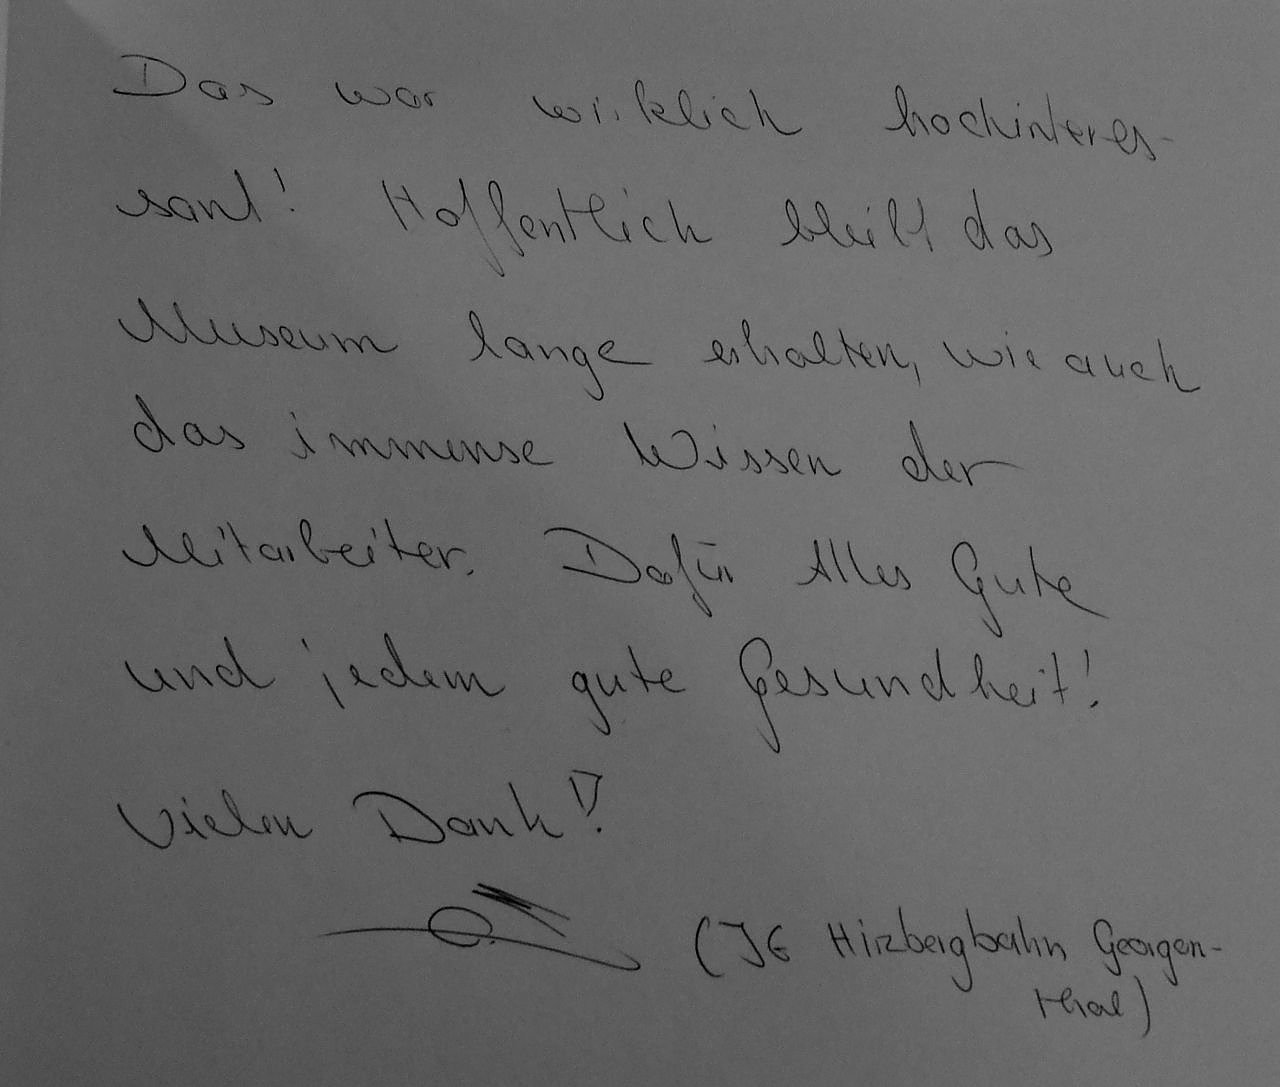 Das war wirklich hochinteres-
sant! Hoffentlich bleibt das
Museum lange erhalten, wie auch
das immense Wissen der
Mitarbeiter. Dafür Alles Gute
und jedem gute Gesundheit!
Vielen Dank!
(IG Hirzbergbahn Georgen-
thal)